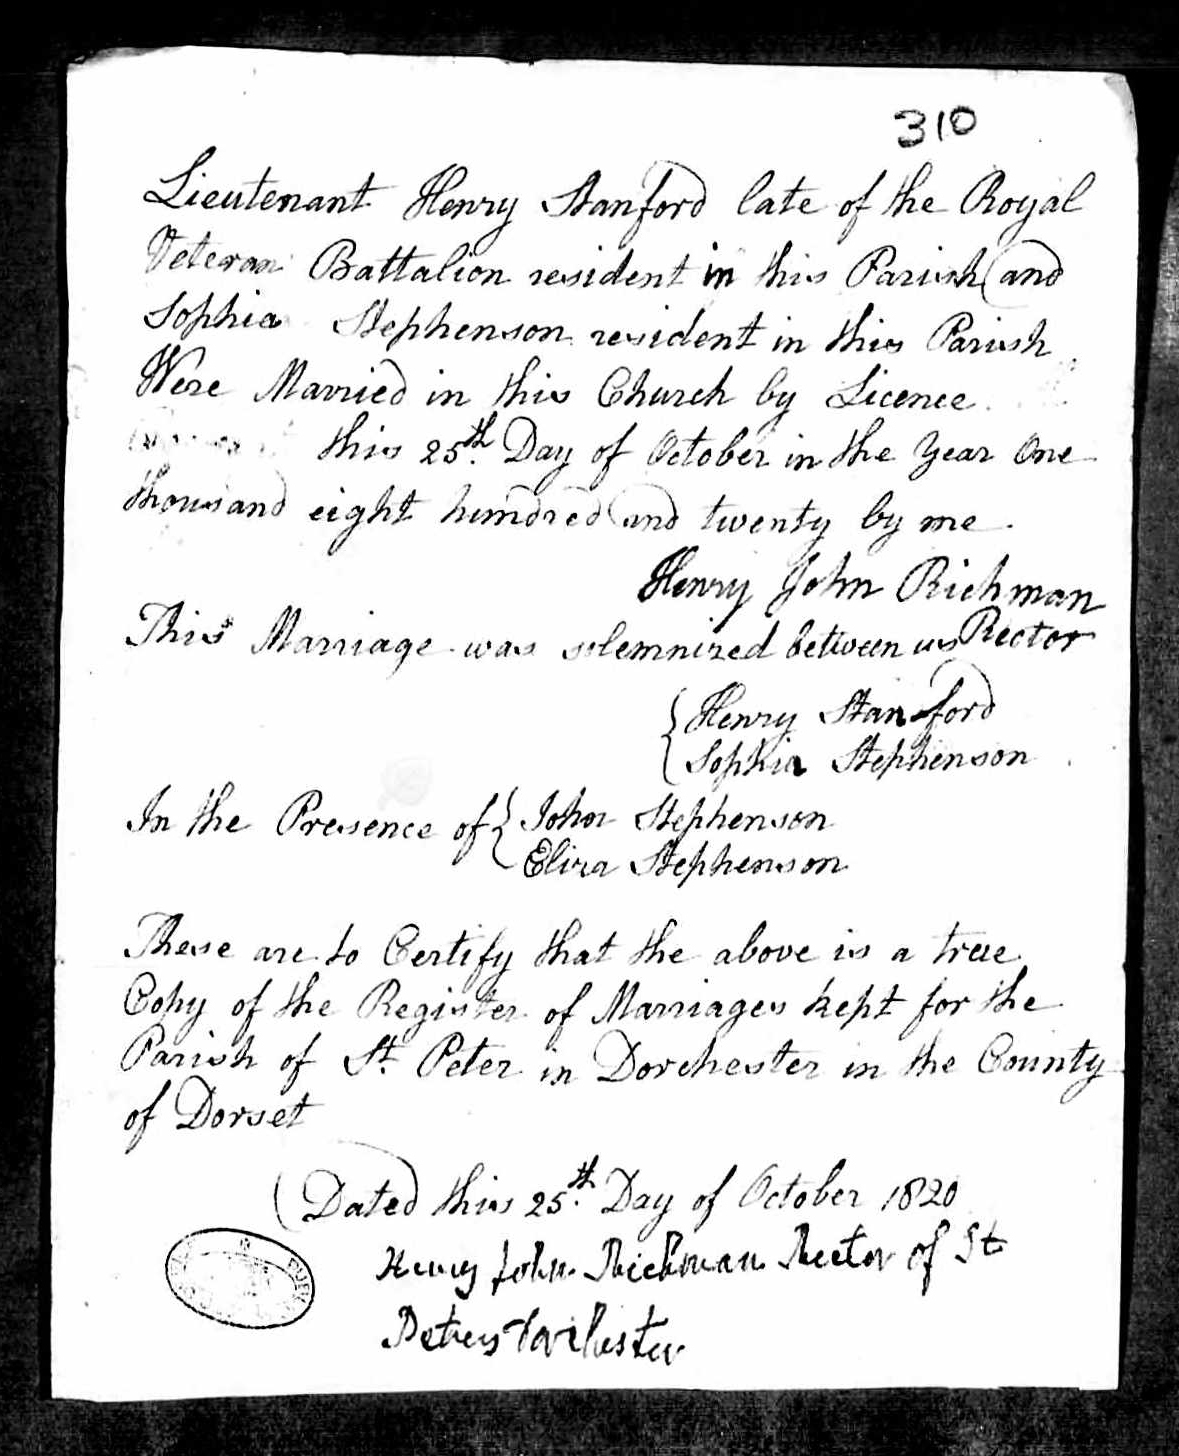 310
Lieutenant Henry Stanford late of the Royal
Veteran Battalion resident in this Parish and
Sophia Stephenson resident in this Parish
Were Married in this Church by Licence
this 25th Day of October in the Year One
thousand eight hundred and twenty by me
Henry John Richman
This Marriage was solemnized between us Rector
Henry Stanford
Sophia Stephenson
In the Presence of { John Stephenson
Eliza Stephenson
These are to Certify that the above is a true
Copy of the Register of Marriages kept for the
Parish of St. Peter in Dorchester in the County
of Dorset
Dated this 25th Day of October 1820
Henry John Richman Rector of St
Peters Dorchester